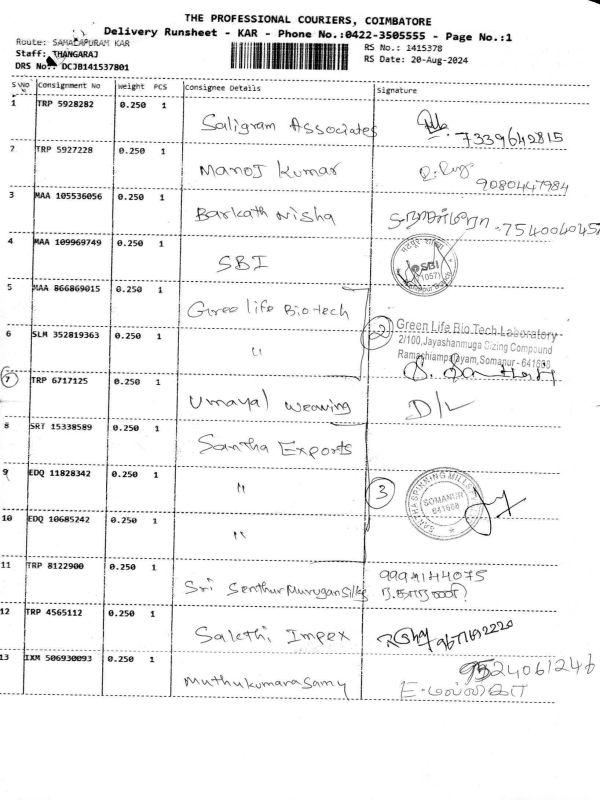 THE PROFESSIONAL COURIERS, COIMBATORE
Delivery Runsheet - KAR - Phone No.:0422-3505555 - Page No.:1
Route: SAMALAPURAM KAR
RS No.: 1415378
Staff: THANGARAJ
RS Date: 20-Aug-2024
DRS No.: DCJB141537801
S No Consignment No Weight PCS Consignee Details Signature
1 TRP 5928282 0.250 1 Saligram Associates 7339642815
2 TRP 5927228 0.250 1 Manoj Kumar 9080447984
3 MAA 105536056 0.250 1 Barkath Nisha
4 MAA 109969749 0.250 1 SBI
SBI
5 MAA 866869015 0.250 1 Green life Biotech
2 Green Life Bio Tech Laboratory
2/100,Jayashanmuga Sizing Compound
Ramachiampalayam, Somanur - 641668
6 SLM 352819363 0.250 1 "
7 TRP 6717125 0.250 1 Umayal weaving D/L
8 SRT 15338589 0.250 1 Santha Exports
9 EDQ 11828342 0.250 1 "
3 SANTHA SPINNING MILLS
SOMANUR
641668
10 EDQ 10685242 0.250 1 "
11 TRP 8122900 0.250 1 Sri Senthur Murugan Silks
12 TRP 4565112 0.250 1 Salethi Impex
13 IXM 506930093 0.250 1 Muthukumarasamy 9524061246
E. மல்லிகா